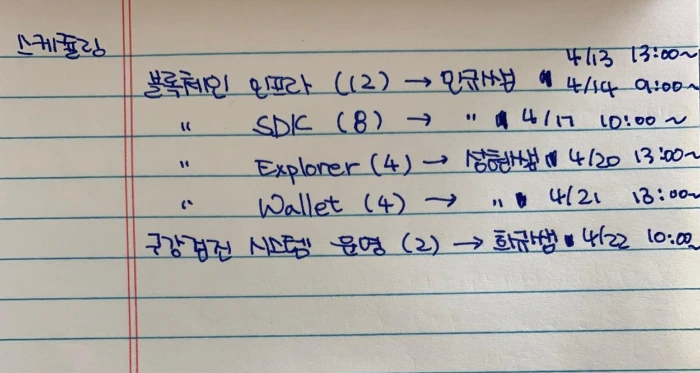 스케쥴링
4/13 13:00~
블록체인 인프라 (12) → 민규쌤 4/14 9:00~
" SDK (8) → " 4/17 10:00~
" Explorer (4) → 성형쌤 4/20 13:00~
" Wallet (4) → " 4/21 13:00~
구강검진 시스템 운영 (2) → 화규쌤 4/22 10:00~